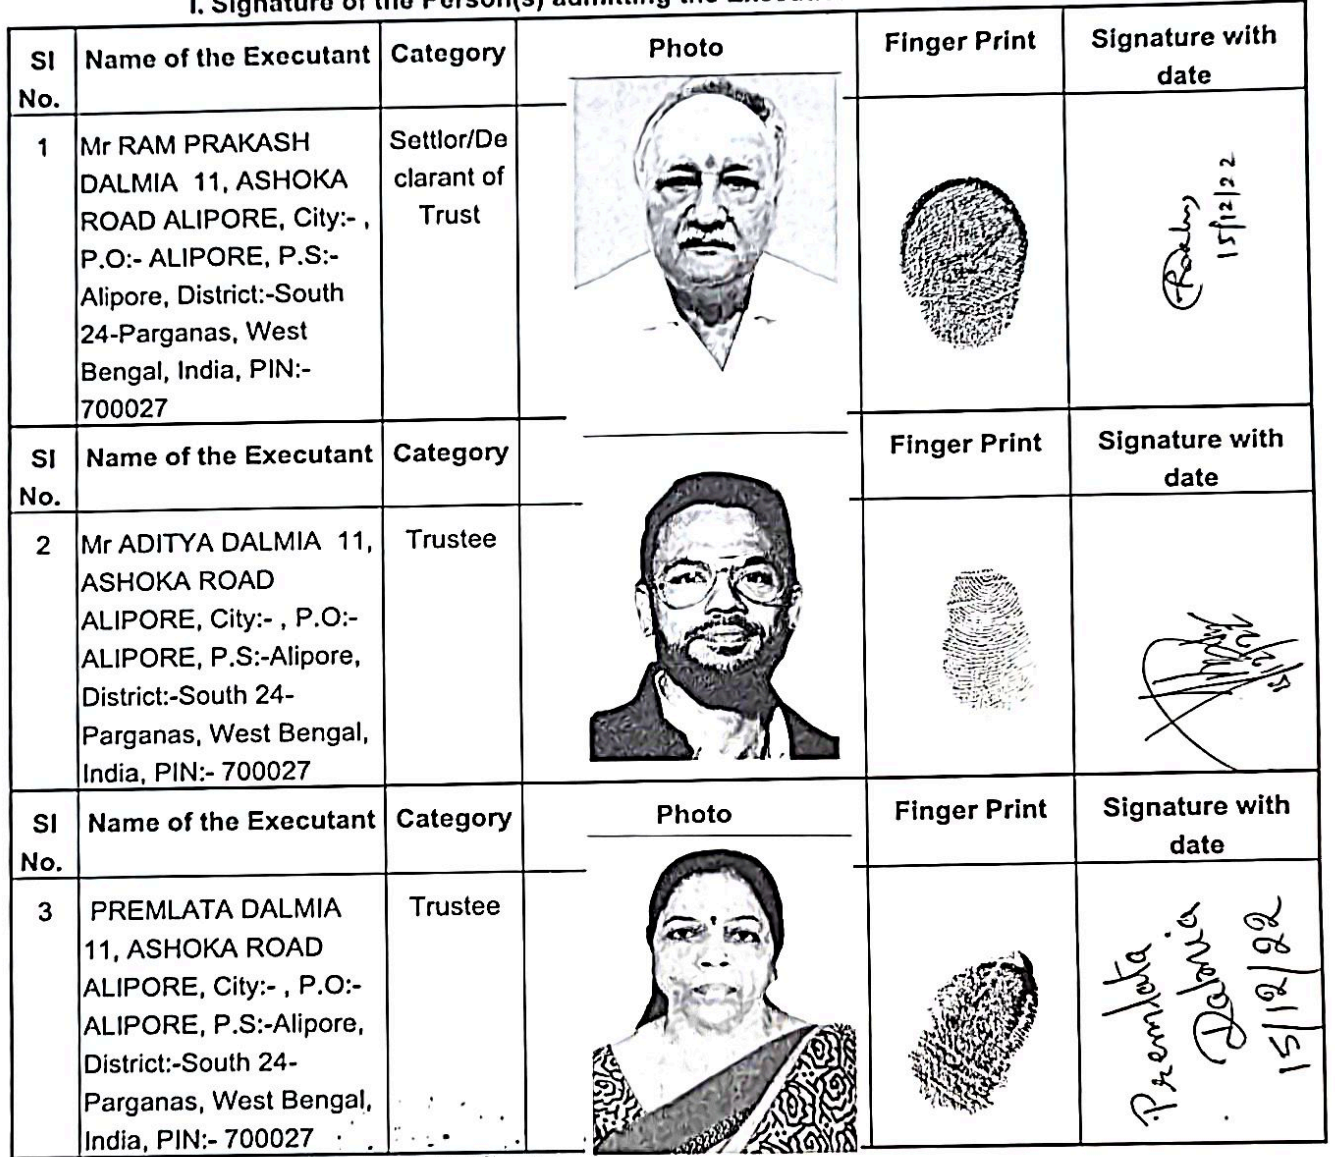 I. Signature of the Person(s) admitting the
SI No. Name of the Executant Category Photo Finger Print Signature with date
1 Mr RAM PRAKASH Settlor/De
DALMIA 11, ASHOKA clarant of
ROAD ALIPORE, City:- , Trust
P.O:- ALIPORE, P.S:-
Alipore, District:-South
24-Parganas, West
Bengal, India, PIN:-
700027
15/12/22
SI No. Name of the Executant Category Finger Print Signature with date
2 Mr ADITYA DALMIA 11, Trustee
ASHOKA ROAD
ALIPORE, City:- , P.O:-
ALIPORE, P.S:-Alipore,
District:-South 24-
Parganas, West Bengal,
India, PIN:- 700027
SI No. Name of the Executant Category Photo Finger Print Signature with date
3 PREMLATA DALMIA Trustee
11, ASHOKA ROAD
ALIPORE, City:- , P.O:-
ALIPORE, P.S:-Alipore,
District:-South 24-
Parganas, West Bengal,
India, PIN:- 700027
Premlata
Dalmia
15/12/22